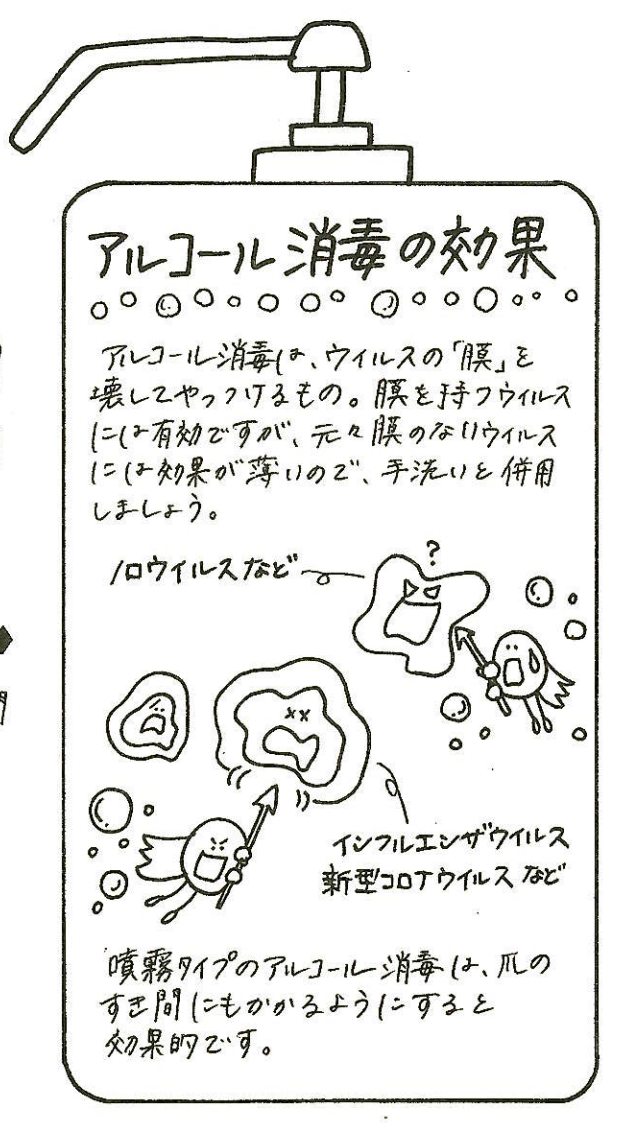 アルコール消毒の効果
アルコール消毒は、ウイルスの「膜」を
壊してやっつけるもの。膜を持つウイルス
には有効ですが、元々膜のないウイルス
には効果が薄いので、手洗いと併用
しましょう。
ノロウイルスなど
?
インフルエンザウイルス
新型コロナウイルスなど
噴霧タイプのアルコール消毒は、爪の
すき間にもかかるようにすると
効果的です。